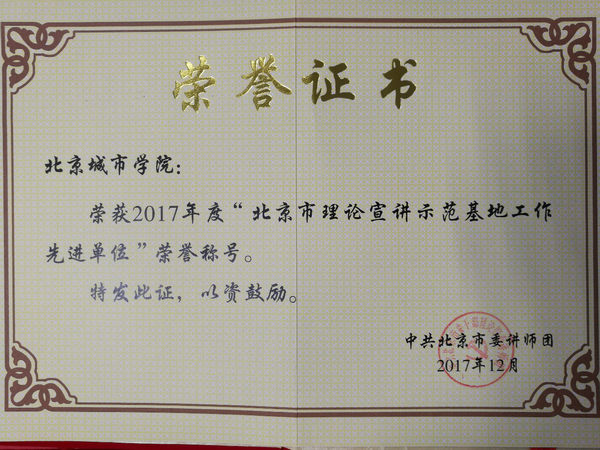 荣誉证书
北京城市学院：
荣获2017年度“北京市理论宣讲示范基地工作
先进单位”荣誉称号。
特发此证，以资鼓励。
中共北京市委讲师团
2017年12月